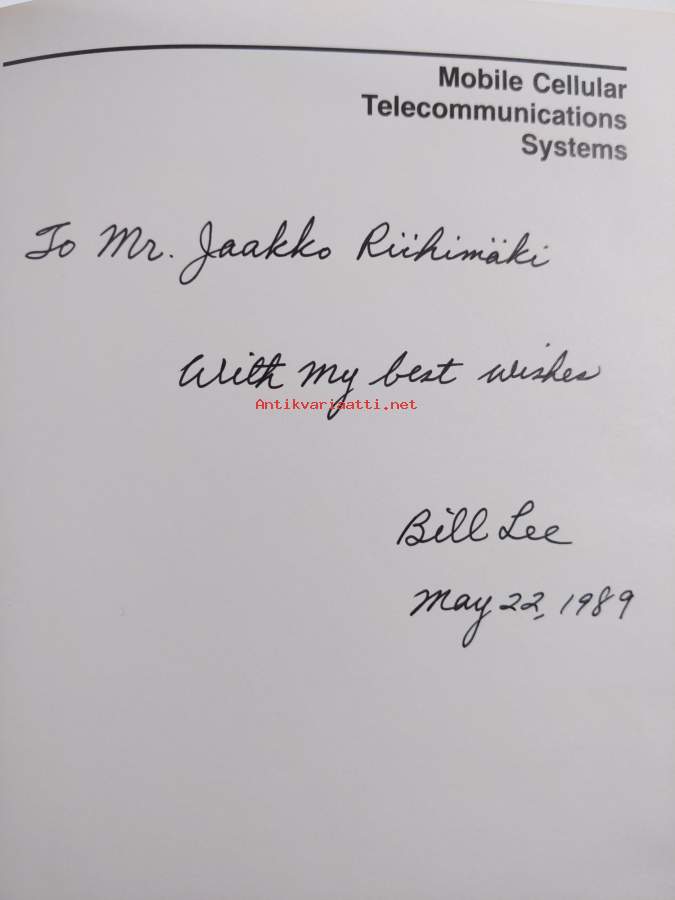 Mobile Cellular
Telecommunications
Systems
To Mr. Jaakko Riihimäki
With my best wishes
Antikvariaatti.net
Bill Lee
May 22, 1989